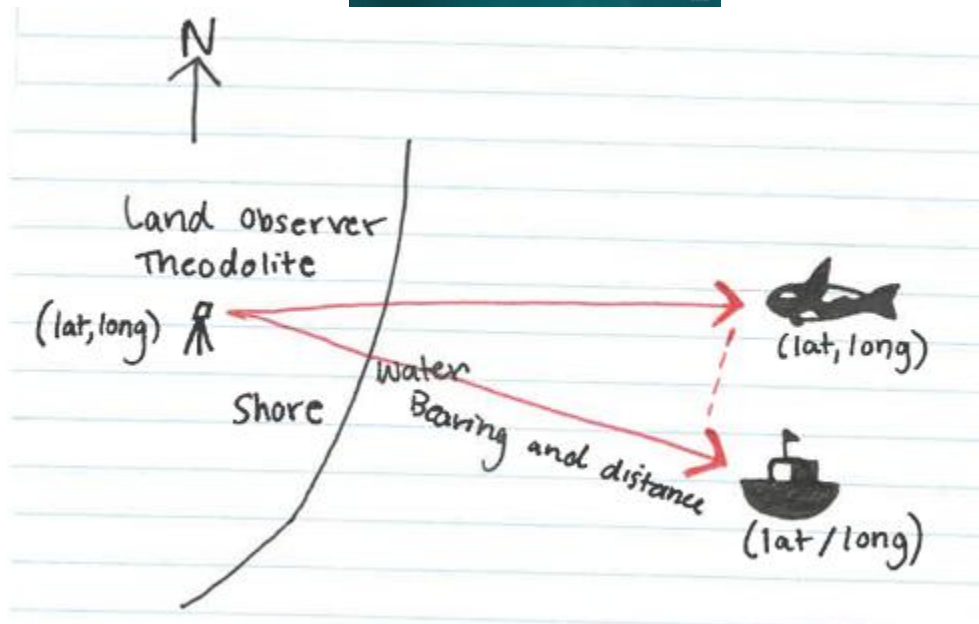 N
Land Observer
Theodolite
(lat, long)
Shore
Water
Bearing and distance
(lat, long)
(lat / long)